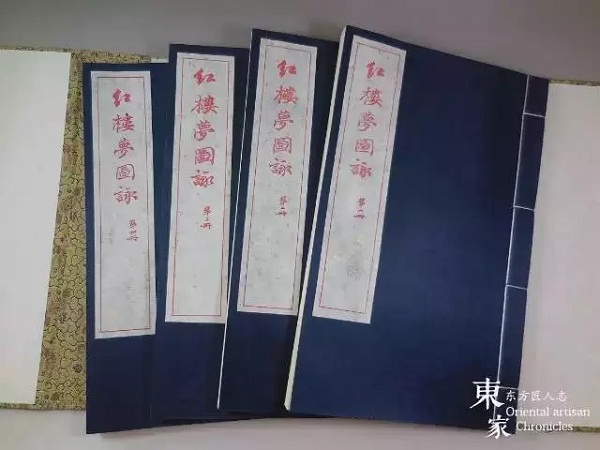 红樓夢圖詠
第一册
红樓夢圖詠
第二册
红樓夢圖詠
第三册
红樓夢圖詠
第四册
東家
东方匠人志
Oriental artisan
Chronicles